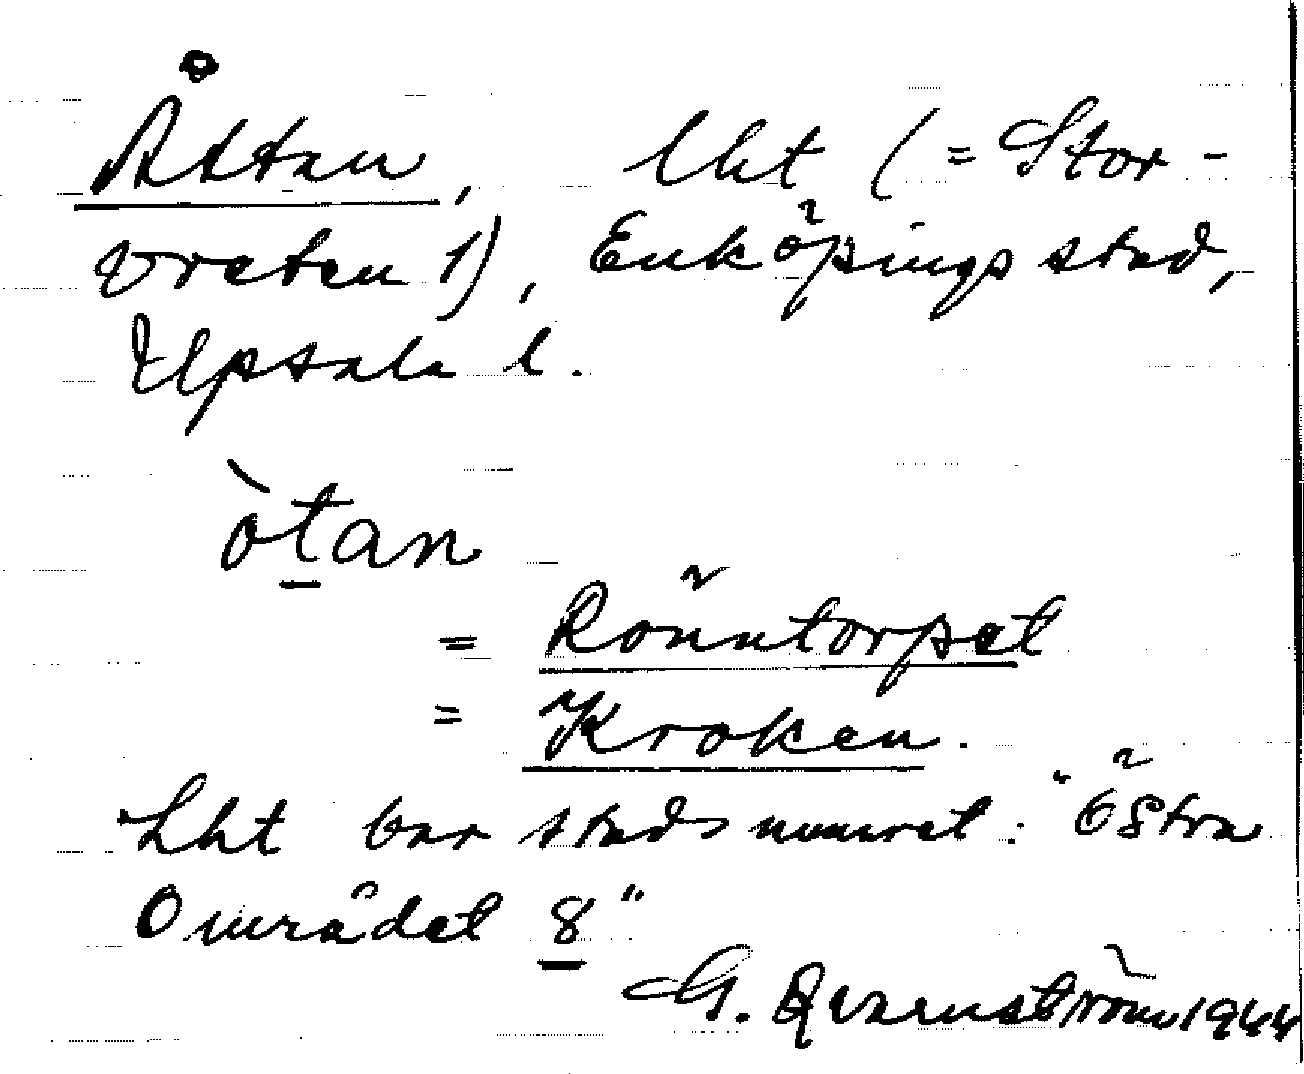 Åttan, lht (= Stor-
vreten 1), Enköpings stad,
Upsala l.
òtan
= Rönntorpet
= Kroken.
Lht bar stadsnumret: "Östra
Området 8"
G. Qvarnström 1944